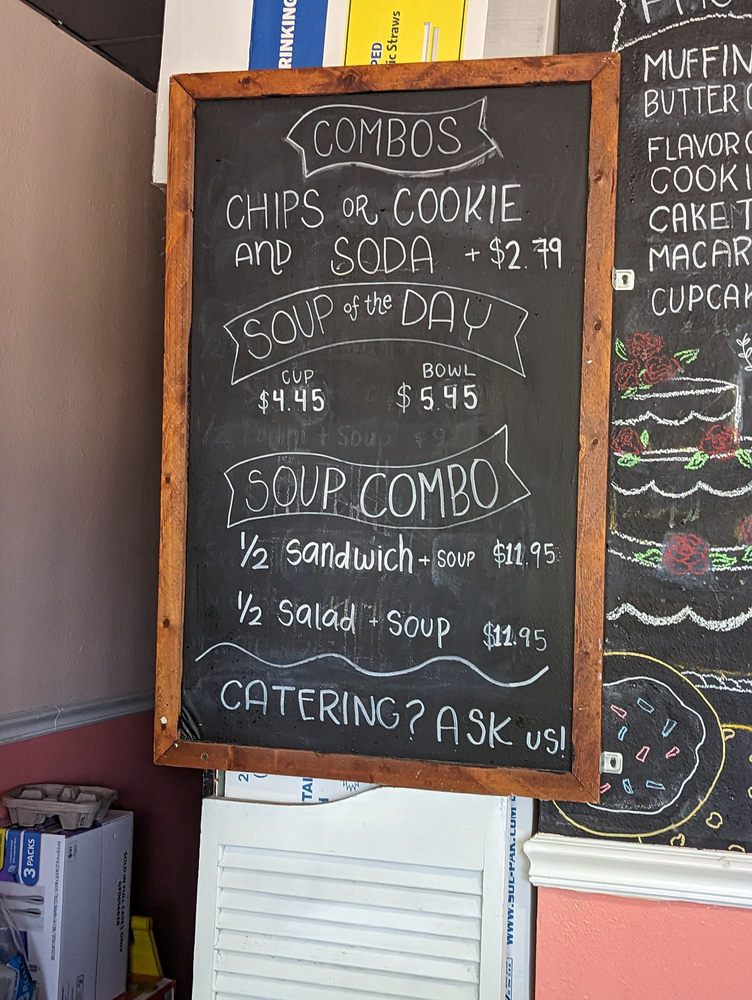 RINKING
PED
ic Straws
COMBOS
CHIPS OR COOKIE
AND SODA + $2.79
SOUP of the DAY
CUP BOWL
$4.45 $5.45
SOUP COMBO
1/2 Sandwich + SOUP $11.95
1/2 Salad + SOUP $11.95
CATERING? ASK us!
MUFFIN
BUTTER
FLAVOR
COOKI
CAKE
MACAR
CUPCAK
3 PACKS
SOLD IN FULL CASES ONLY